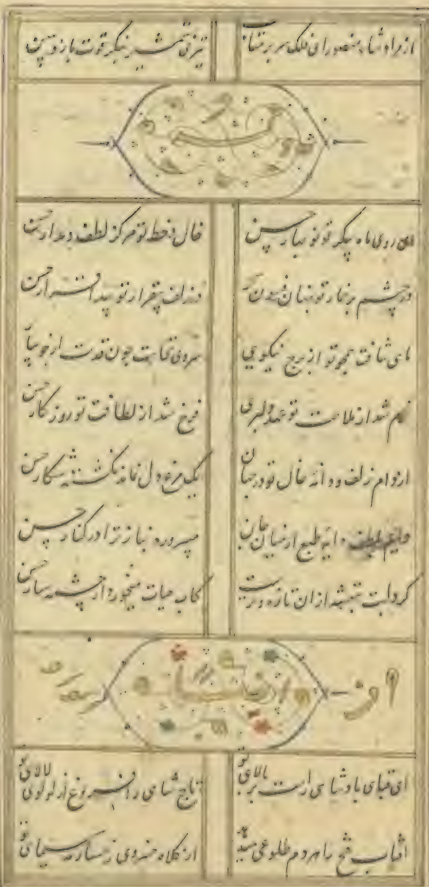 از مراد شاه منصور ای فلک سر بر متاب تیزی شمشیر بنگر قوت بازو ببین
ای روی ماه پیکر تو نوبهار حسن خال و خط تو مرکز لطف و مدار حسن
در چشم پرخمار تو پنهان فسون سحر در زلف بیقرار تو پیدا قرار حسن
ماهی نتافت همچو تو از برج نیکویی سروی نخاست چون قدت از جویبار حسن
خرم شد از ملاحت تو عهد دلبری فرخ شد از لطافت تو روزگار حسن
از دام زلف و دانه خال تو در جهان یک مرغ دل نماند نگشته شکار حسن
دایم بلطف دایه طبع از میان جان میپرورد بناز ترا در کنار حسن
گرد لبت بنفشه از ان تازه و ترست کاب حیات میخورد از چشمه سار حسن
ای قبای پادشاهی راست بر بالای تو تاج شاهی را فروغ از لولوی لالای تو
افتاب فتح را هر دم طلوعی میدهد از کلاه خسروی رخسار مه سیمای تو